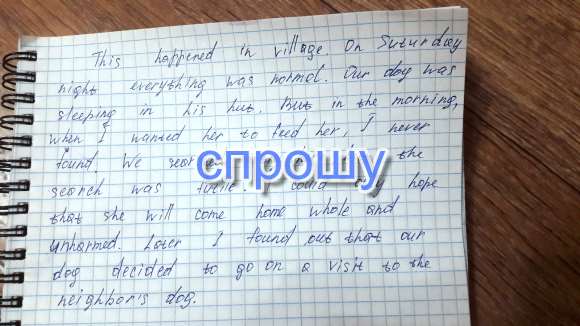 This happened in village. On Suturday
night everything was normal. Our dog was
sleeping in his hut. But in the morning,
when I wanted her to feed her, I never
found. We the
спрошу
search was futile. I could only hope
that she will come home whole and
unharmed. Later I found out that our
dog decided to go on a visit to the
neighbor's dog.